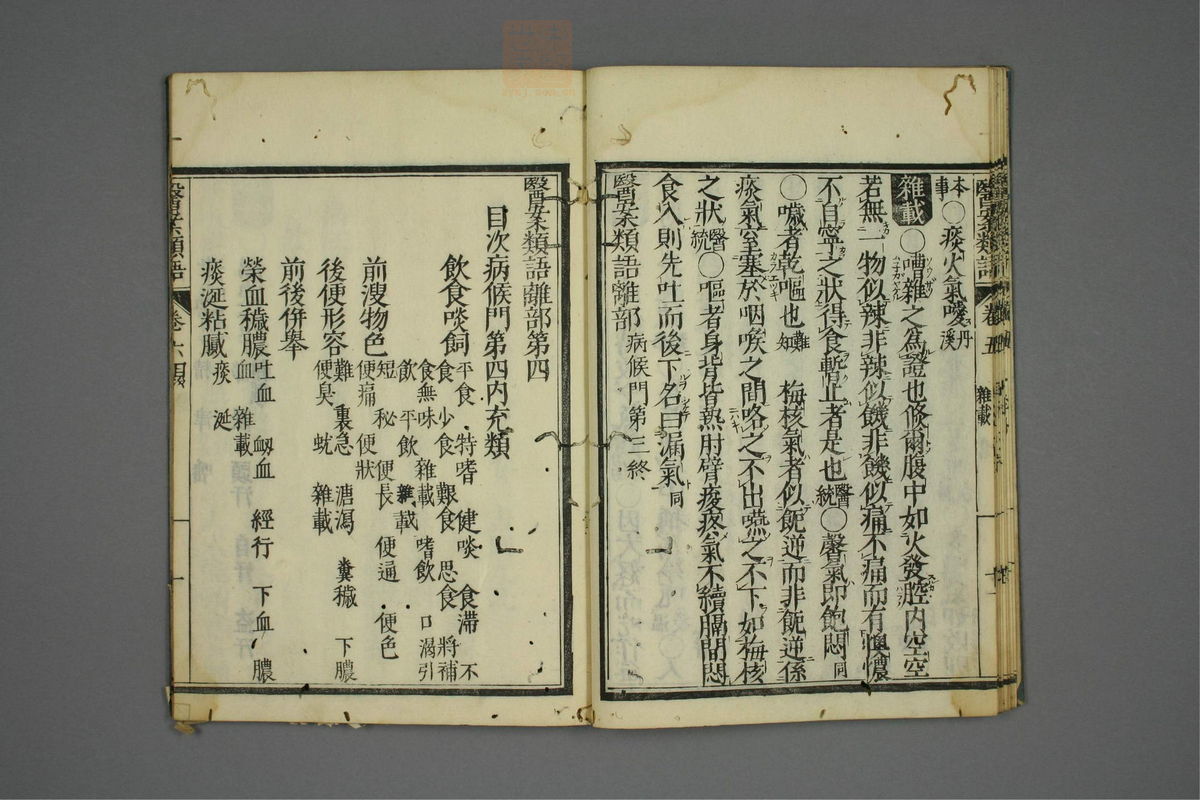 本事○痰火氣噯丹溪
雜載○嘈雜之為證也倏爾腹中如火發腔内空空
若無一物似辣非辣似餓非饑似痛不痛而有懊憹
不自寧之狀得食暫止者是也醫統○馨氣即飽悶同
○噦者乾嘔也難知 梅核氣者似呃逆而非呃逆係
痰氣窒塞於咽喉之間咯之不出嚥之不下如梅核
之狀醫統○嘔者身背皆熱肘臂痠疼氣不續膈間悶
食入則先吐而後下名曰漏氣同
醫案類語離部病候門第三終
醫案類語 卷五 雜載
醫案類語離部第四
目次病候門第四内充類
飲食啖飼平食 特嗜 健啖 食滯 不食 少食 艱食 思食 將補
食無味 雜載 嗜飲 口渴引飲 平飲 雜載
前溲物色短 秘 便長 便遍 便色 便痛 便狀
後便形容難 裏急 溏瀉 糞穢 下膿 便臭 蚘 雜載
前後併舉
榮血穢膿吐血 衂血 經行 下血 膿血 雜載
痰涎粘膩痰 涎
醫案類語 卷六目